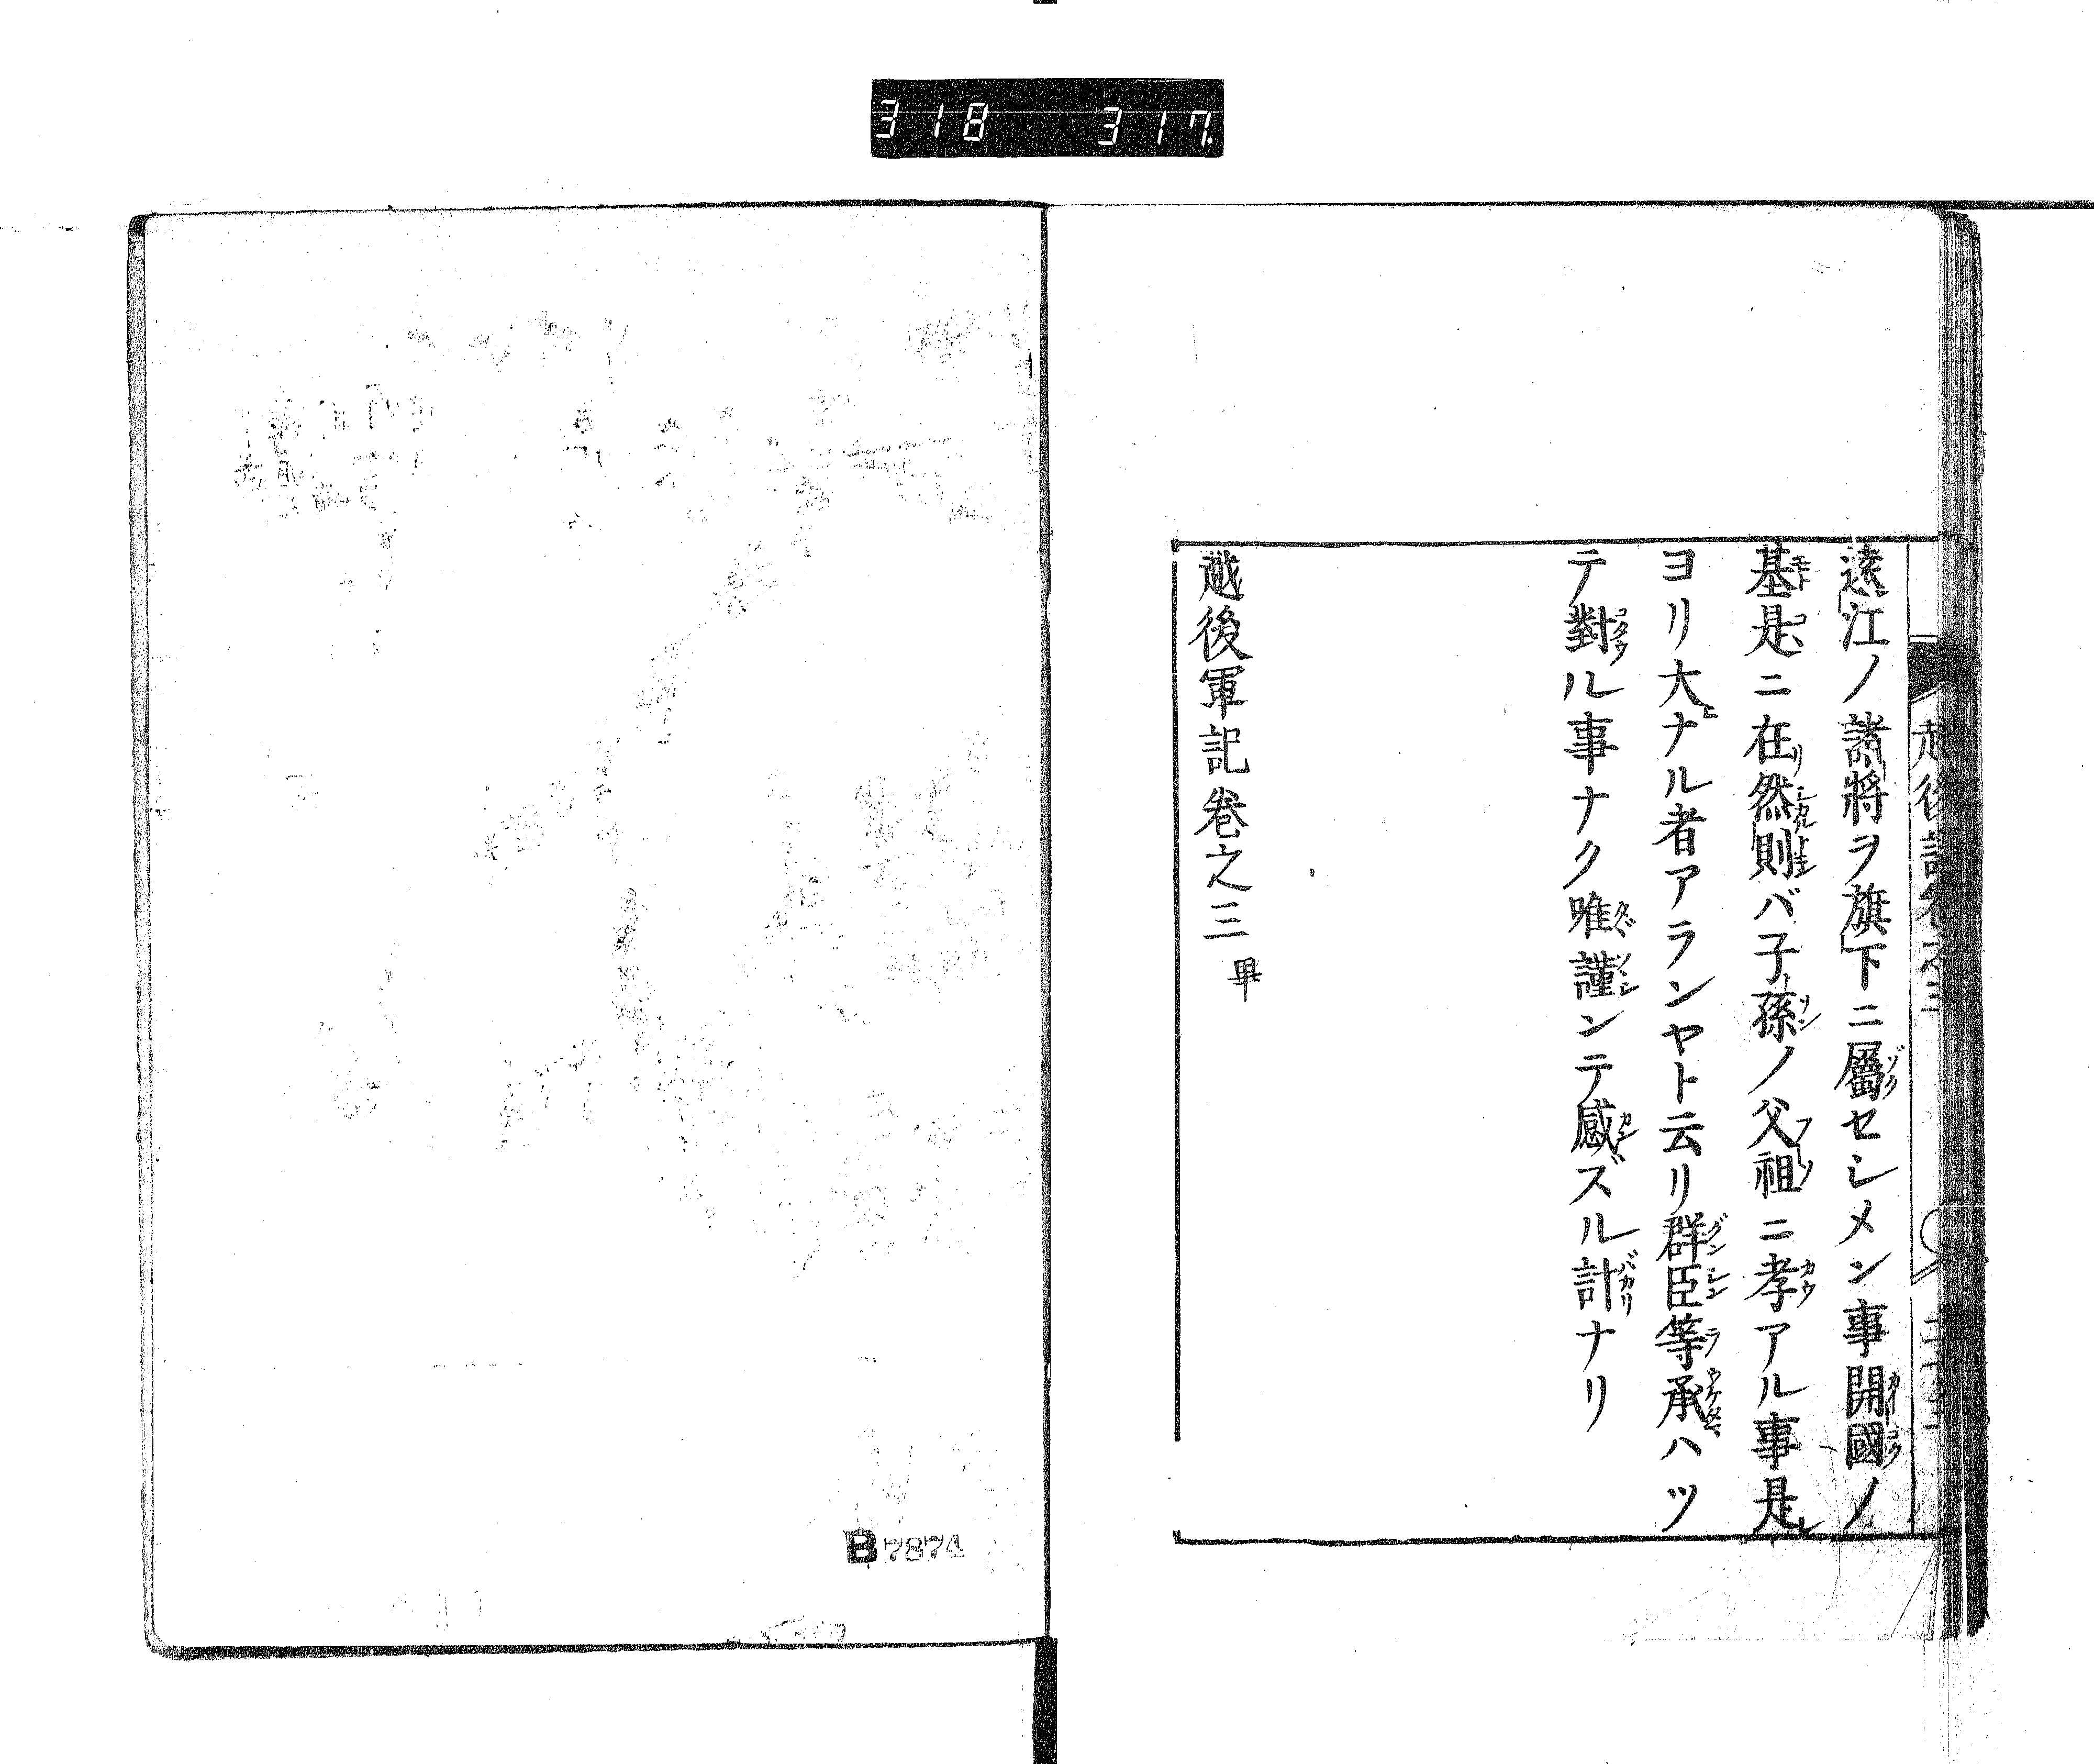 318 317.
遠江ノ諸將ヲ旗下ニ屬セシメン事開國ノ
基是ニ在然則バ子孫ノ父祖ニ孝アル事是
ヨリ大ナル者アランヤト云リ群臣等承ハツ
テ對ル事ナク唯謹ンテ感ズル計ナリ
越後軍記卷之三 畢
B 7874